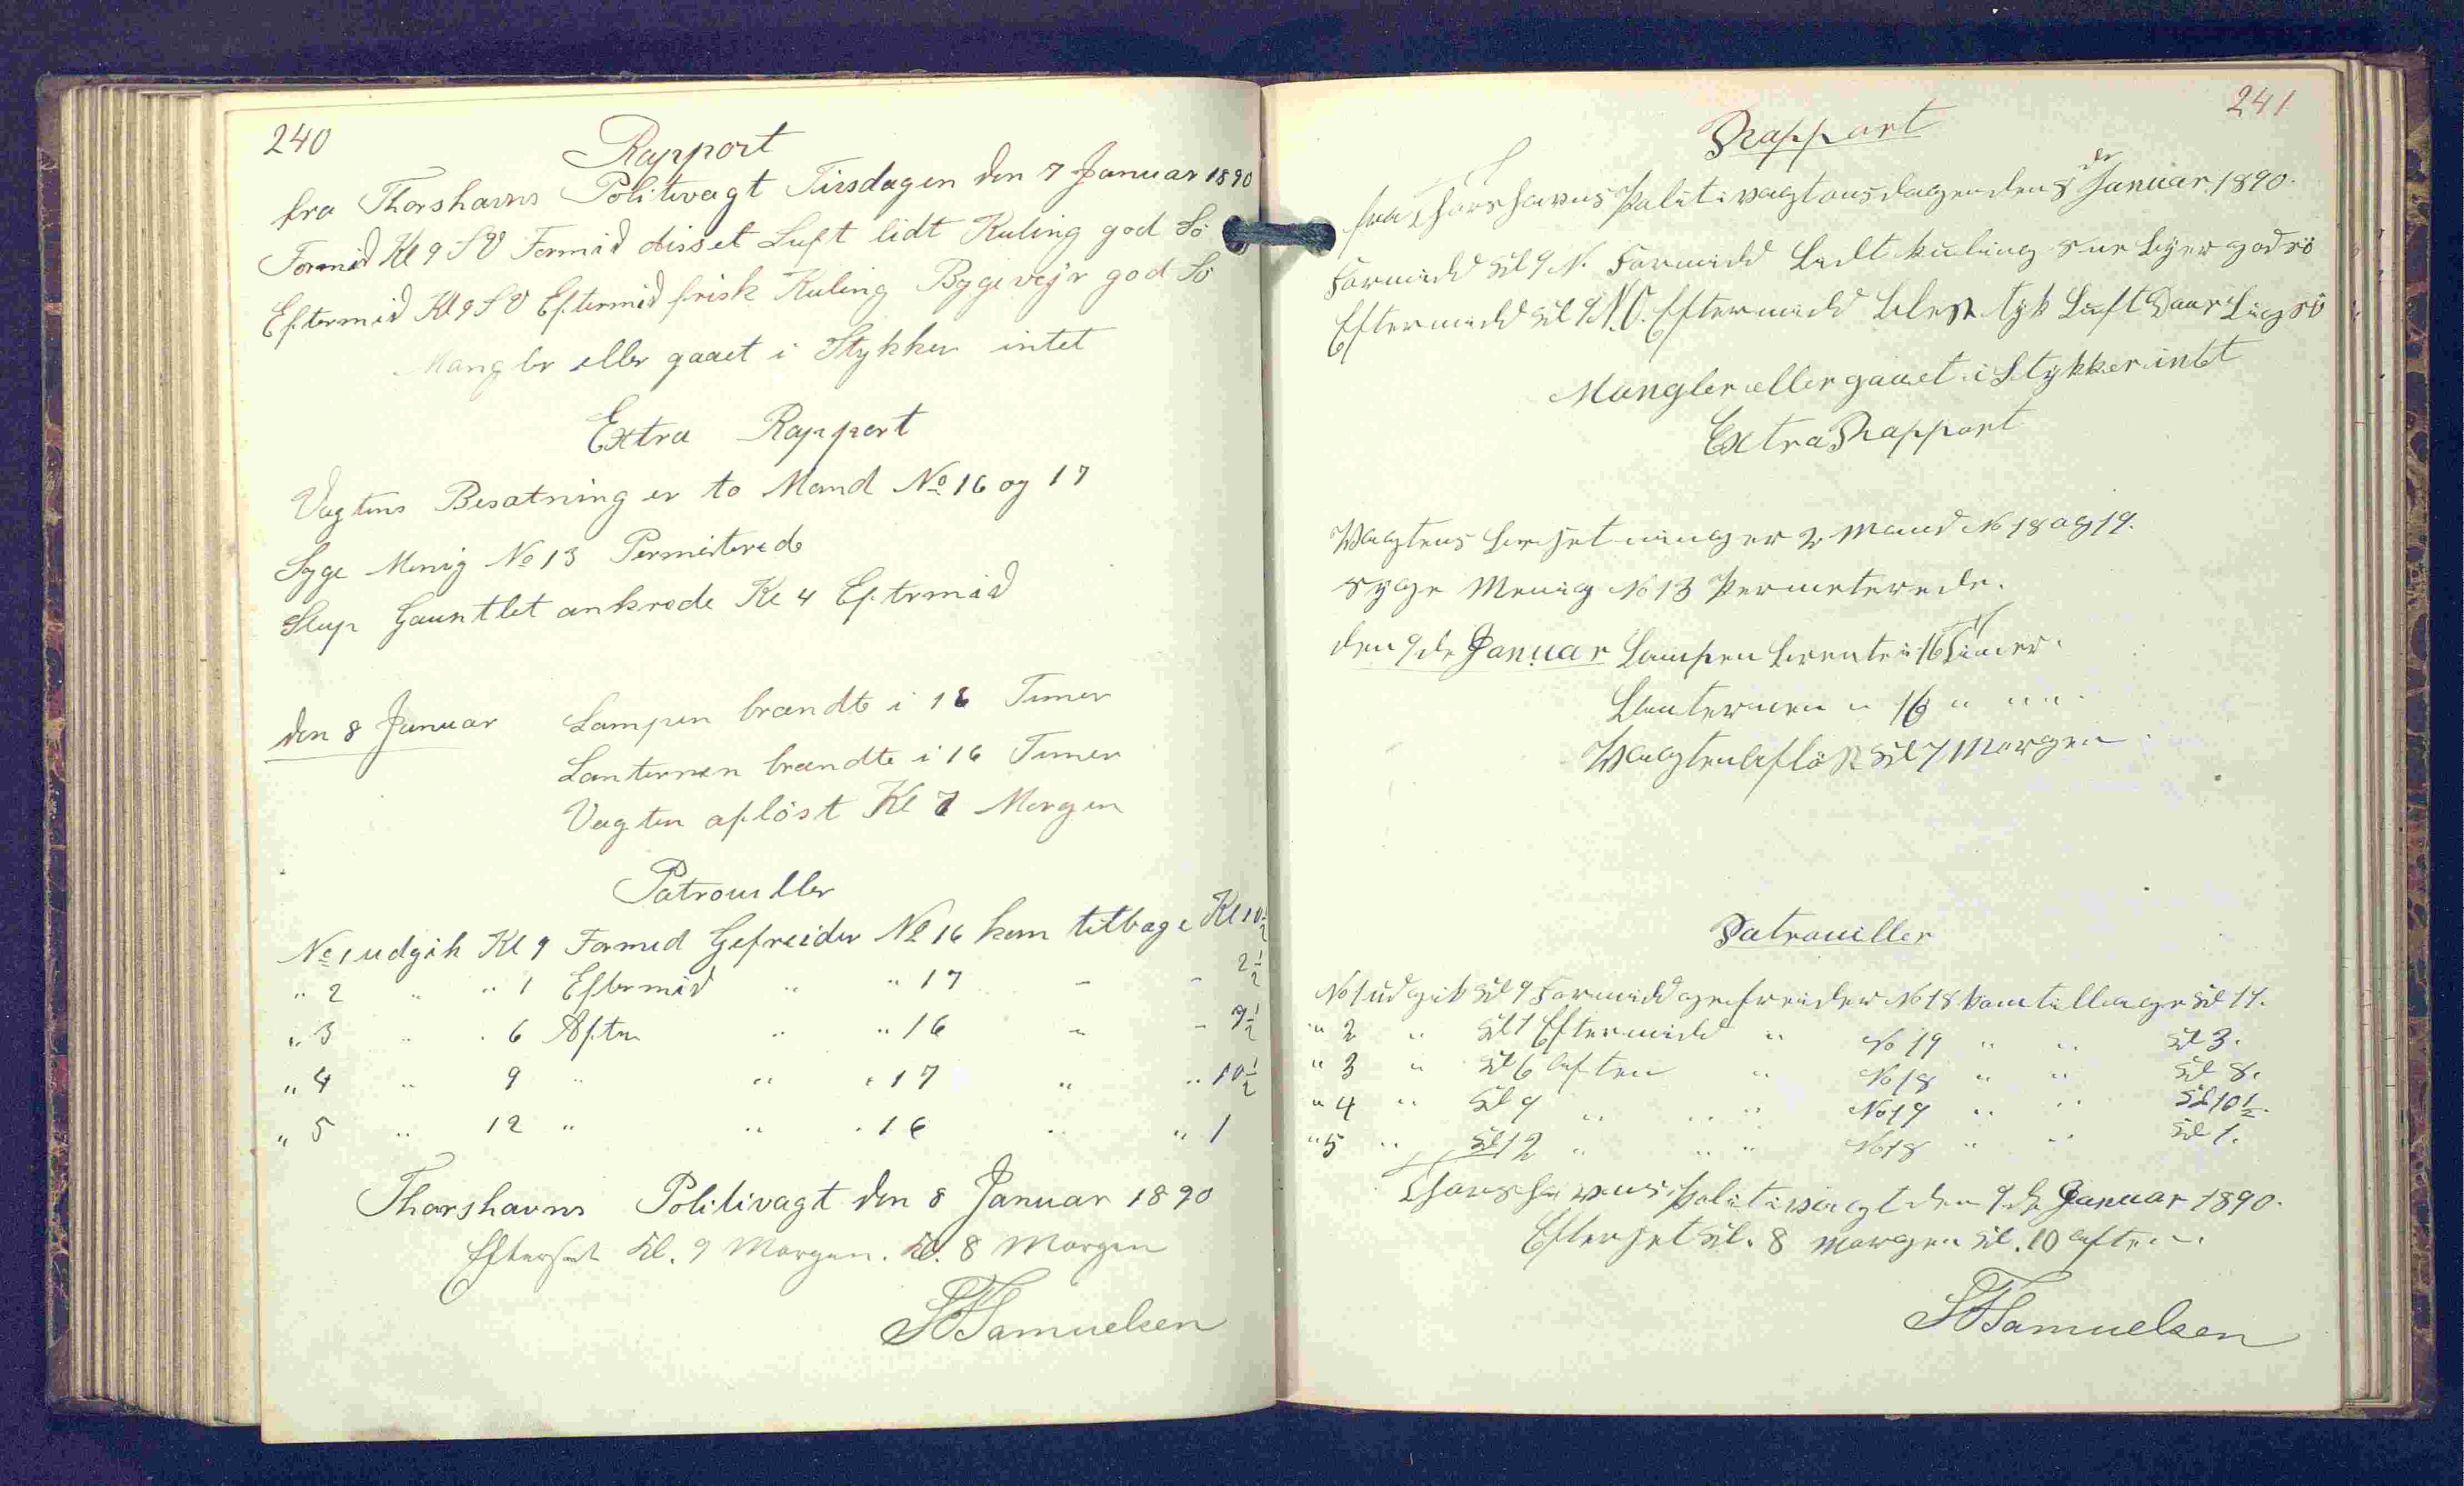 240
Rapport
fra Thorshavns Politivagt Tirsdagen den 7 Januar 1890
Formid Kl 9 SV Formid disset Luft lidt Kuling god Sö
Eftermid Kl 9 SV Eftermid frisk Kuling Bygevejr god Sö
Mangler eller gaaet i Stykker intet
Extra Rapport
Vagtens Besætning er to Mand No 16 og 17
Syge Menig No 13 Permiterede
Slup Gauntlet ankrede Kl 4 Eftermid
den 8 Januar Lampen brændte i 16 Timer
Lanternen brændte i 16 Timer
Vagten aflöst Kl 7 Morgen
Patrouiller
No 1 udgik Kl 9 Formid Gefreider No 16 kom tilbage Kl 10½
" 2 " " 1 Eftermid " " 17 - - 2½
" 3 " " 6 Aften " " 16 " - 7½
" 4 " 9 " " " 17 " " 10½
" 5 " 12 " " " 16 " " 1
Thorshavns Politivagt den 8 Januar 1890
Efterset Kl. 9 Morgen. Kl. 8 Morgen
Samuelsen
241
Rapport
fra Thorshavns Politivagt onsdagen den 8 de Januar 1890.
Formidd Kl 9 N. Formidd Lidt kuling Sne Byer god sö
Eftermidd Kl 9 N.O. Eftermidd blest tyk Luft Daarlig sö
Mangler eller gaaet i Stykker intet
Extra Rapport
Wagtens besetning er 2 Mand No 18 og 19.
syge Menig No 13 Permeterede.
den 9de Januar Lampen brente i 16 Timer.
Lanternen " 16 " " "
Wagten aflöst Kl 7 Morgen
Patrouiller
No 1 udgik Kl 9 Formidd gefreider No 18 kom tilbage Kl 11.
" 2 " Kl 1 Eftermidd " No 19 " " Kl 3.
" 3 " Kl 6 aften " No 18 " " Kl 8.
" 4 " Kl 9 " " " No 19 " " Kl 10½.
" 5 " Kl 12 " " " No 18 " " Kl 1.
Thorshavns Politivagt den 9de Januar 1890.
Efterset Kl. 8 Morgen Kl. 10 aften.
Samuelsen